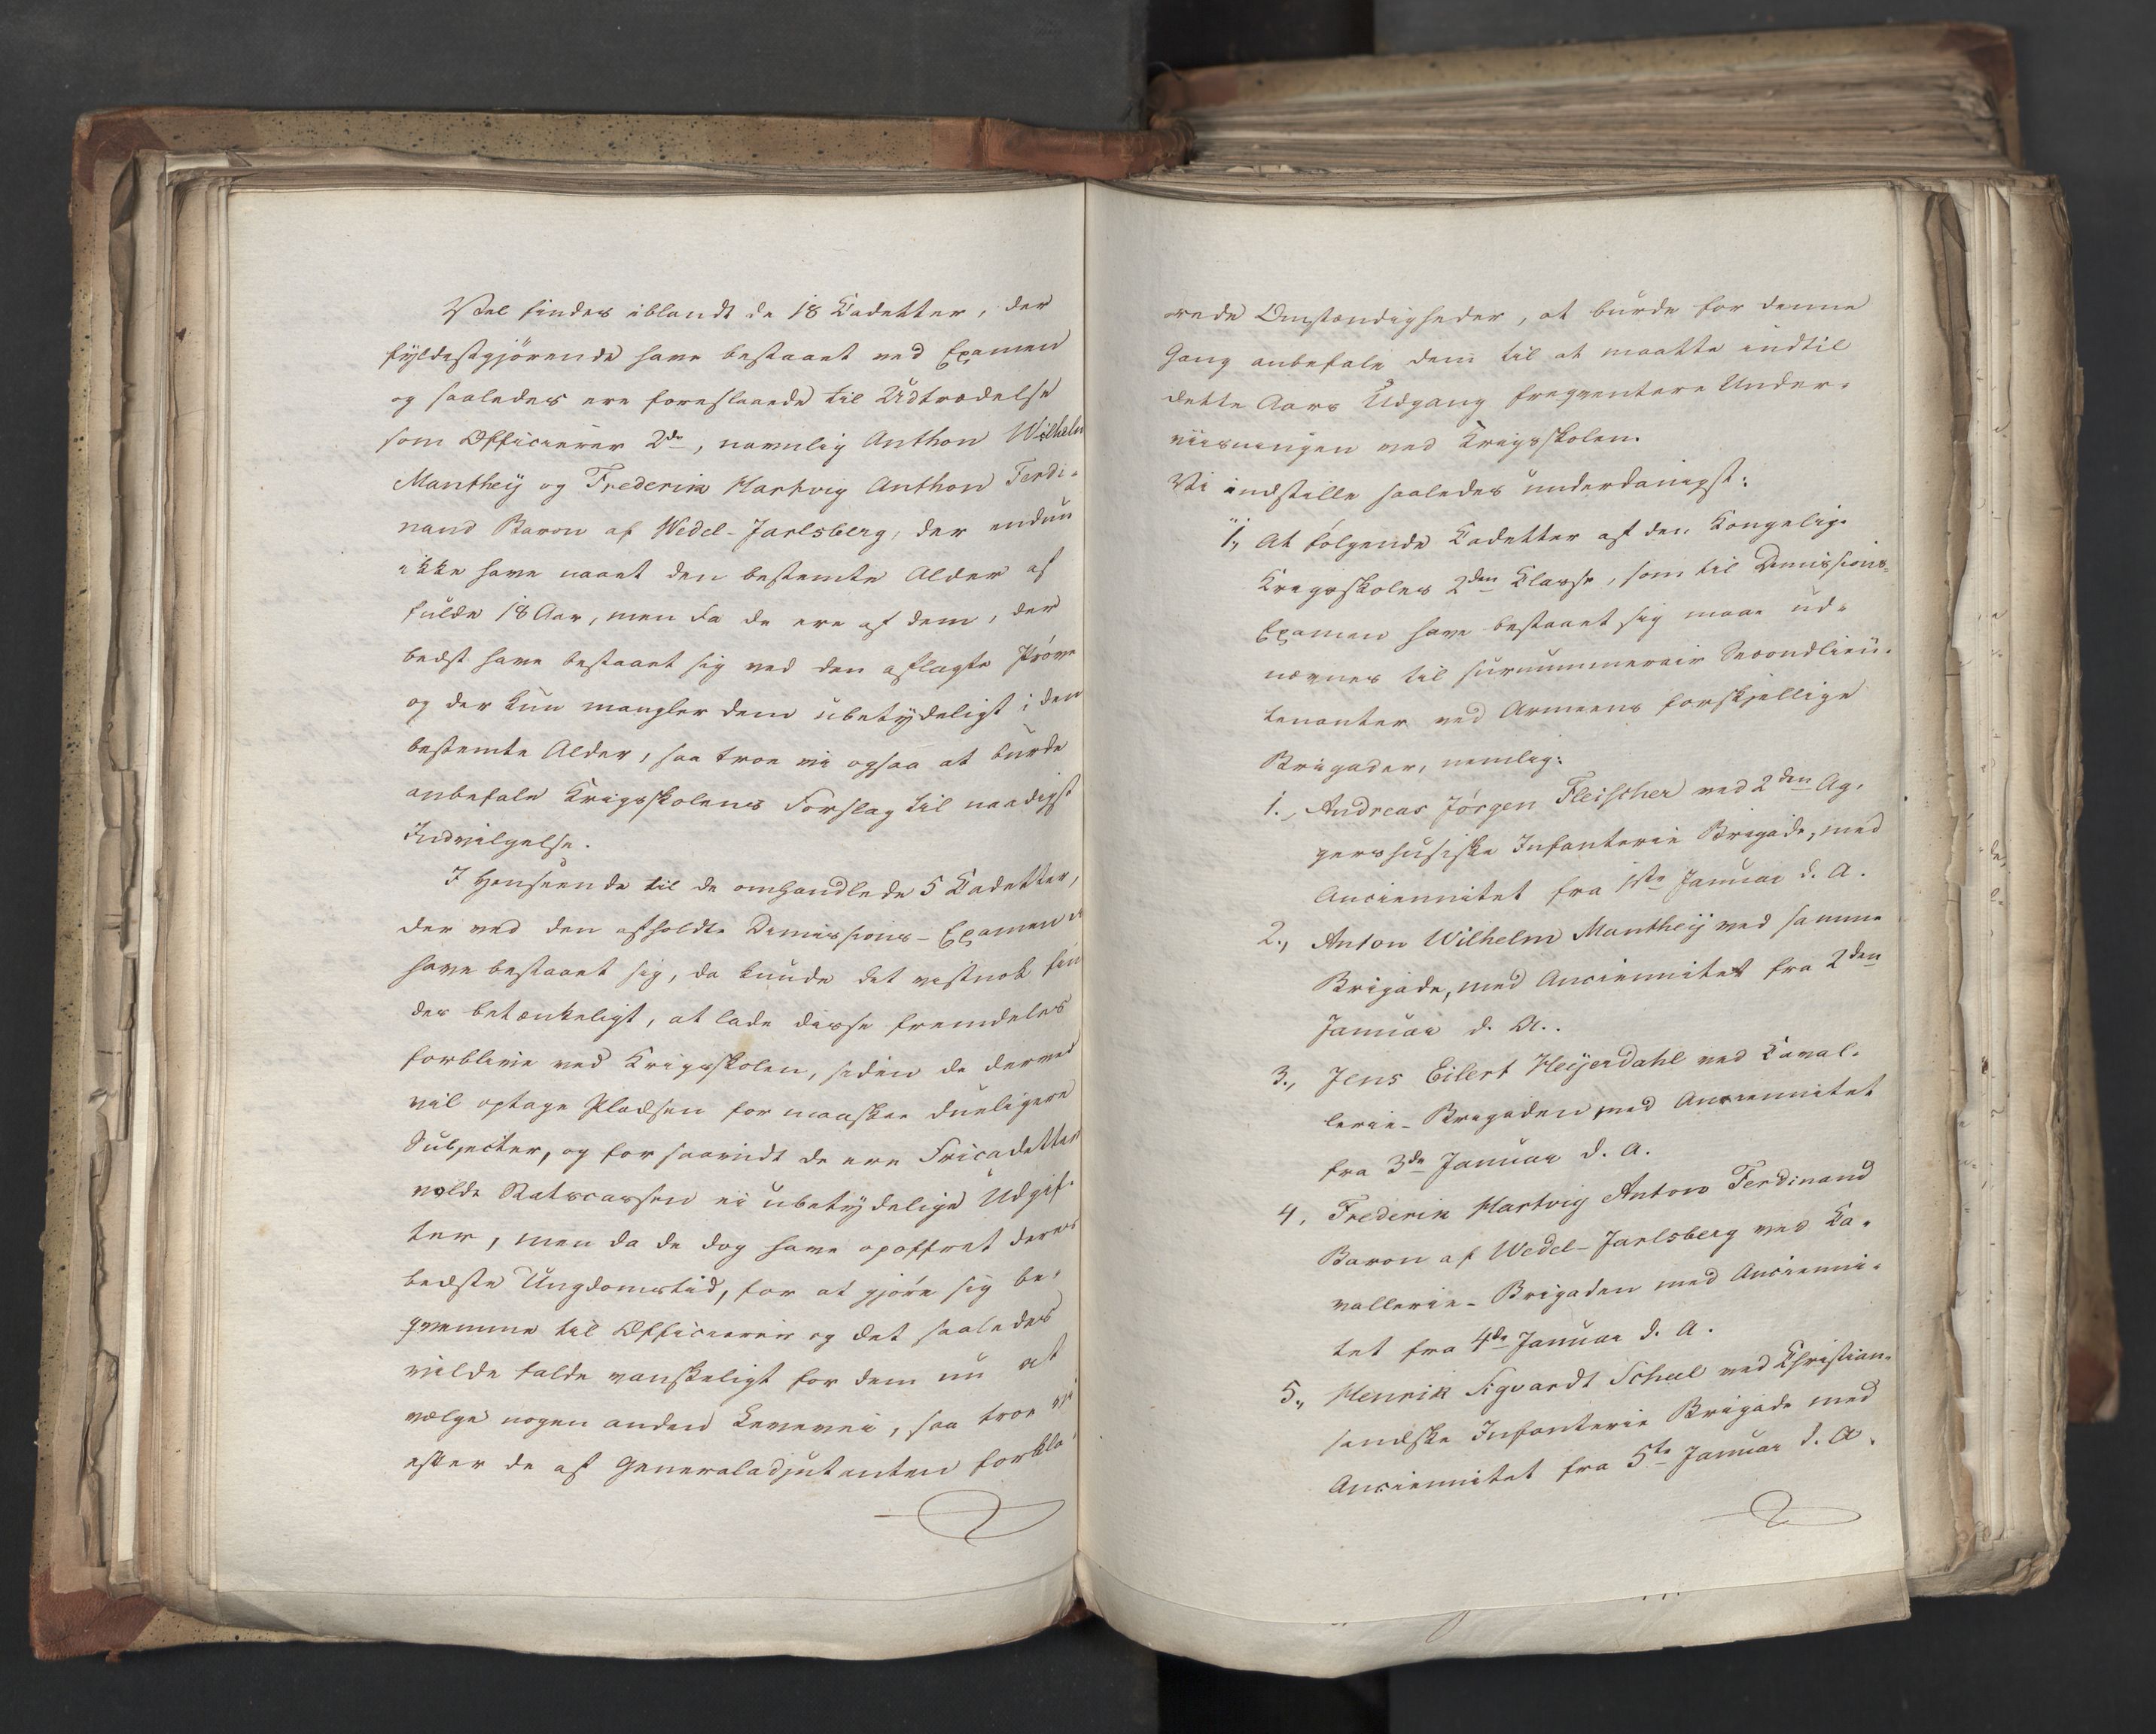 Vel findes iblandt de 18 Cadetter, der
fyldestgjörende have bestaaet ved Examen
og saaledes ere foreslaaede til Udtrædelse
som Officierer 2de, navnlig Anthon Wilhelm
Manthey og Frederik Hartvig Anthon Ferdi-
nand Baron af Wedel-Jarlsberg, der endnu
ikke have naaet den bestemte Alder af
fulde 18 Aar, men da de ere af dem, der
bedst have bestaaet sig ved den aflagte Pröve
og der kun mangler dem ubetydeligt i den
bestemte Alder, saa troe vi ogsaa at burde
anbefale Krigsskolens Forslag til naadigst
Indvilgelse.
I Henseende til de omhandlede 5 Cadetter,
der ved den afholdte Dimissions-Examen ei
have bestaaet sig, da kunde det vistnok fin
des betænkeligt, at lade disse fremdeles
forblive ved Krigsskolen, siden de derved
vil optage Pladsen for maaskee dueligere
Subjecter, og forsaavidt de ere Fricadetter
volde Statscassen ei ubetydelige Udgif-
ter, men da de dog have opoffret deres
bedste Ungdomstid, for at gjöre sig be-
qvemme til Officierer og det saaledes
vilde falde vanskeligt for dem nu at
vælge nogen anden Levevei, saa troe vi
efter de af Generaladjutanten forkla
rede Omstændigheder, at burde for denne
Gang anbefale dem til at maatte indtil
dette Aars Udgang freqventere Under-
viisningen ved Krigsskolen.
Vi indstille saaledes underdanigst:
"1, At fölgende Cadetter af den Kongelige
Krigsskoles 2den Classe, som til Dimissions-
Examen have bestaaet sig maae ud-
nævnes til surnummerair Secondlieu-
tenanter ved Armeens forskjellige
Brigader, nemlig:
1., Andreas Jörgen Fleischer ved 2den Ag-
gershusiske Infanterie Brigade, med
Anciennitet fra 1ste Januar d. A.
2., Anton Wilhelm Manthey ved samme
Brigade, med Anciennitet fra 2den
Januar d. A..
3., Jens Eilert Heyerdahl ved Caval-
lerie-Brigaden med Anciennitet
fra 3de Januar d. A.
4, Frederik Hartvig Anton Ferdinand
Baron af Wedel-Jarlsberg ved Ca-
vallerie-Brigaden med Ancienni-
tet fra 4de Januar d. A.
5., Henrik Sigvardt Scheel ved Christian-
sandske Infanterie Brigade med
Anciennitet fra 5te Januar d. A.